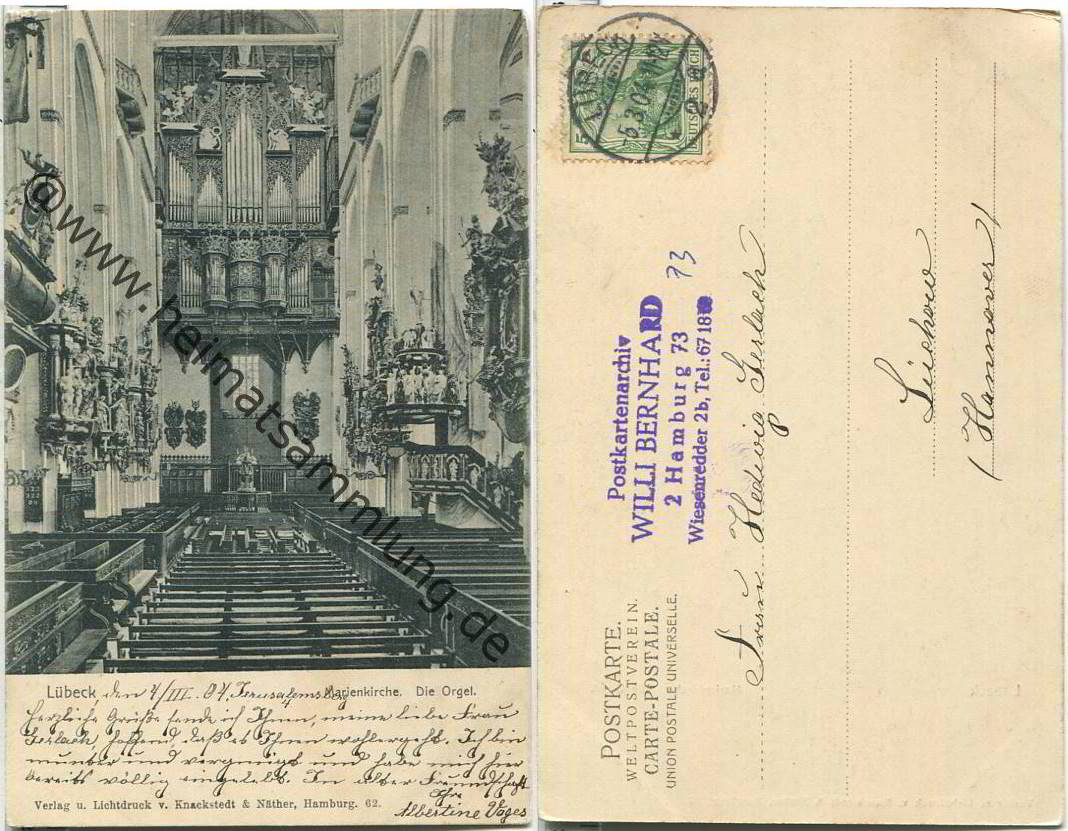 @www.heimatsammlung.de
Lübeck, den 4/III. 04. Jerusalemsberg 4 Marienkirche. Die Orgel.
Herzliche Grüße sende ich Ihnen, meine liebe Frau
Gerlach, hoffend, daß es Ihnen wohlergeht. Ich bin
munter und vergnügt und habe mich hier
bereits völlig eingelebt. In alter Freundschaft
Ihre
Verlag u. Lichtdruck v. Knackstedt & Näther, Hamburg. 62.
Albertine Väges
LÜBECK
5.3.04
2
5
DEUTSCHES REICH
Postkartenarchiv
WILLI BERNHARD
2 Hamburg 73
Wiesenredder 2b, Tel.: 67 18
73
POSTKARTE.
WELTPOSTVEREIN.
CARTE-POSTALE.
UNION POSTALE UNIVERSELLE.
Frau Hedwig Gerlach
Lüchow
(Hannover)